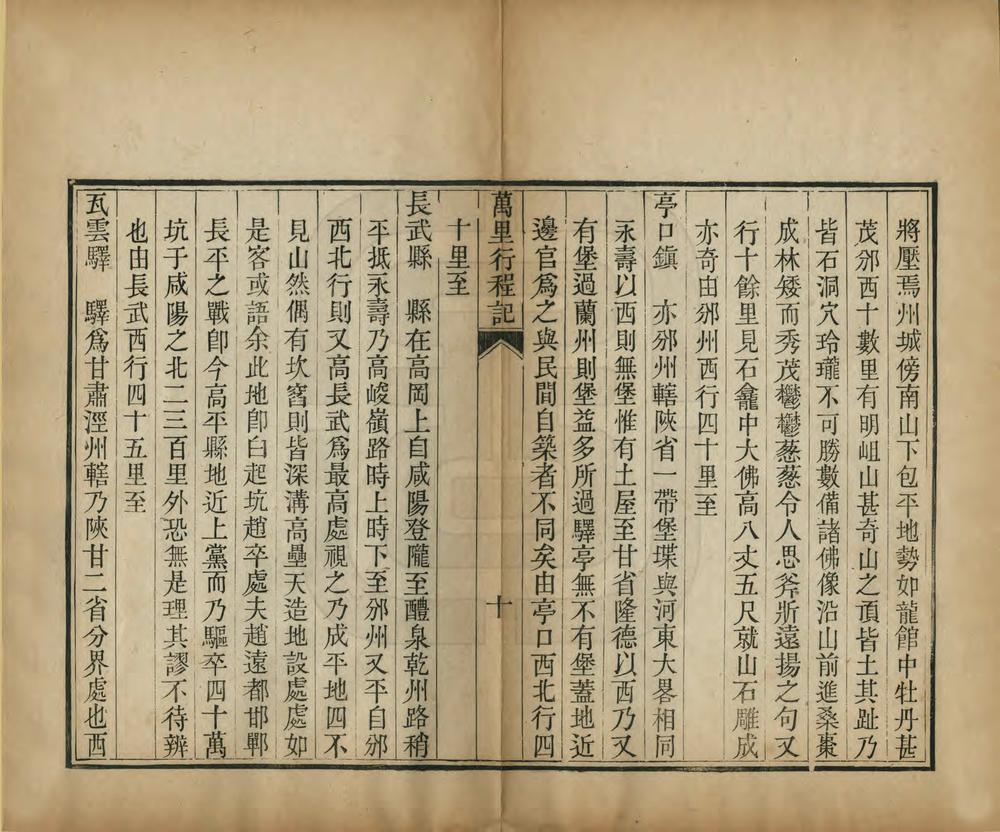 將壓焉州城傍南山下包平地勢如龍館中牡丹甚
茂邠西十數里有明岨山甚奇山之頂皆土其趾乃
皆石洞穴玲瓏不可勝數備諸佛像沿山前進桑棗
成林矮而秀茂欝欝蔥蔥令人思斧斨遠揚之句又
行十餘里見石龕中大佛高八丈五尺就山石雕成
亦奇由邠州西行四十里至
亭口鎮　亦邠州轄陝省一帶堡堞與河東大畧相同
永壽以西則無堡惟有土屋至甘省隆德以西乃又
有堡過蘭州則堡益多所過驛亭無不有堡蓋地近
邊官爲之與民間自築者不同矣由亭口西北行四
萬里行程記　十
十里至
長武縣　縣在高岡上自咸陽登隴至醴泉乾州路稍
平抵永壽乃高峻嶺路時上時下至邠州又平自邠
西北行則又高長武爲最高處視之乃成平地四不
見山然偶有坎窞則皆深溝高壘天造地設處處如
是客或語余此地卽白起坑趙卒處夫趙遠都邯鄲
長平之戰卽今高平縣地近上黨而乃驅卒四十萬
坑于咸陽之北二三百里外恐無是理其謬不待辨
也由長武西行四十五里至
瓦雲驛　驛爲甘肅涇州轄乃陝甘二省分界處也西